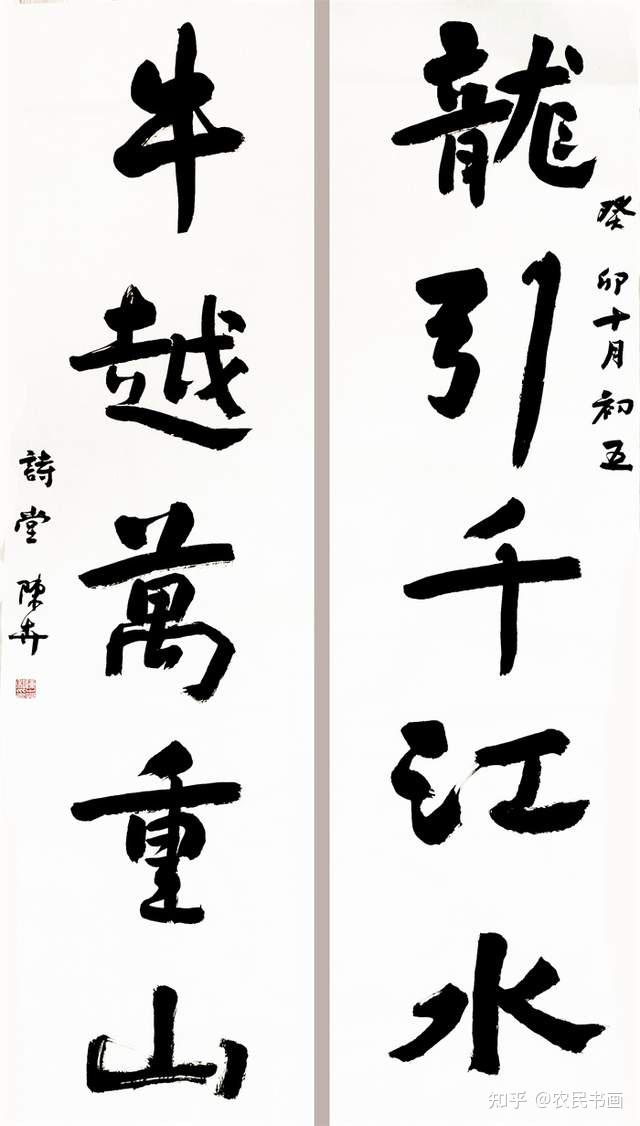 癸卯十月初五
龍引千江水
牛越萬重山
詩堂 陳卉
知乎 @农民书画